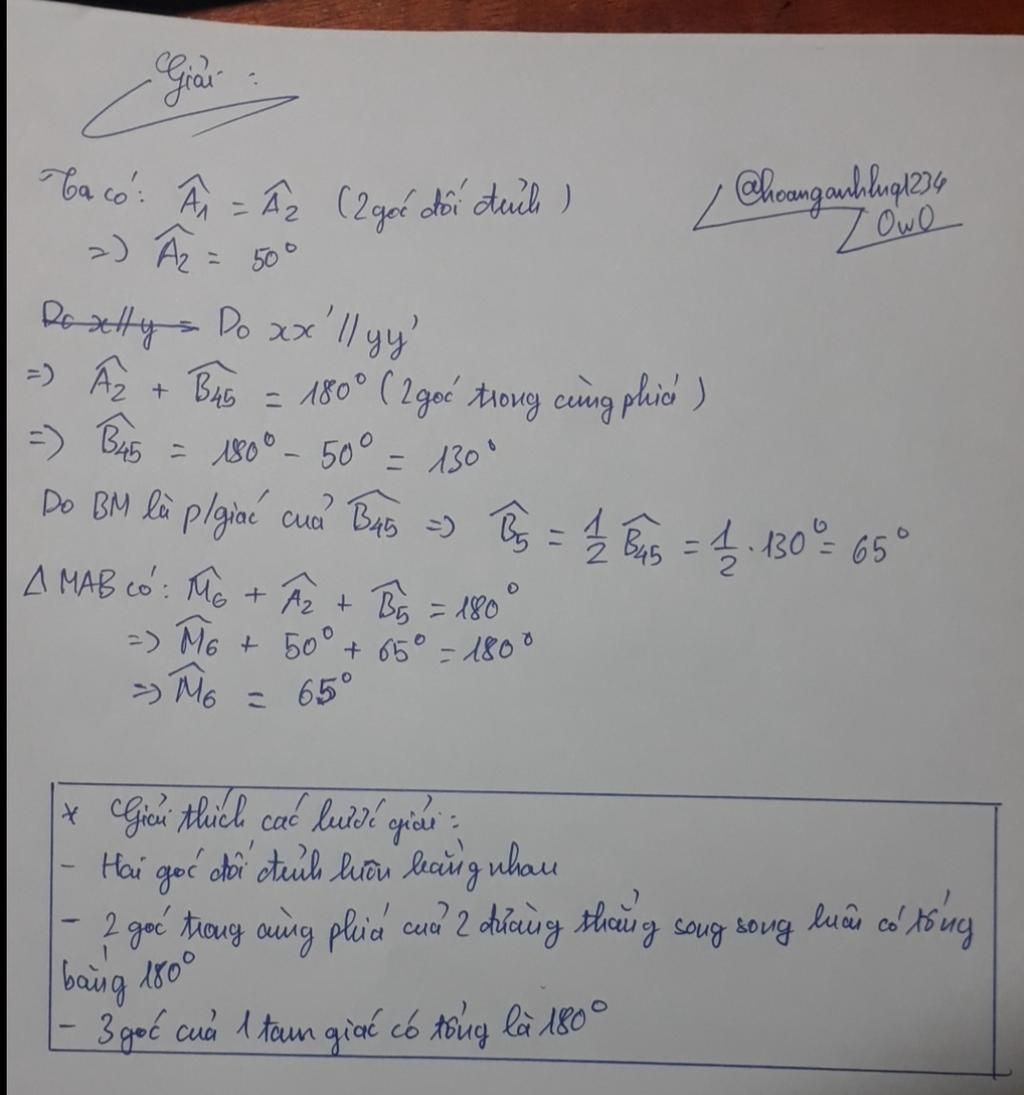 Giải :
Ta có: Â₁ = Â₂ (2 góc đối đỉnh)
@hoanganhluq1234
OwO
=> Â₂ = 50°
Do x//y = Do xx'//yy'
=> Â₂ + B̂₄₅ = 180° (2 góc trong cùng phía)
=> B̂₄₅ = 180° - 50° = 130°
Do BM là p/giác của B̂₄₅ => B̂₅ = 1/2 B̂₄₅ = 1/2 . 130° = 65°
Δ MAB có: M̂₆ + Â₂ + B̂₅ = 180°
=> M̂₆ + 50° + 65° = 180°
=> M̂₆ = 65°
* Giải thích các bước giải:
- Hai góc đối đỉnh luôn bằng nhau
- 2 góc trong cùng phía của 2 đường thẳng song song luôn có tổng
bằng 180°
- 3 góc của 1 tam giác có tổng là 180°